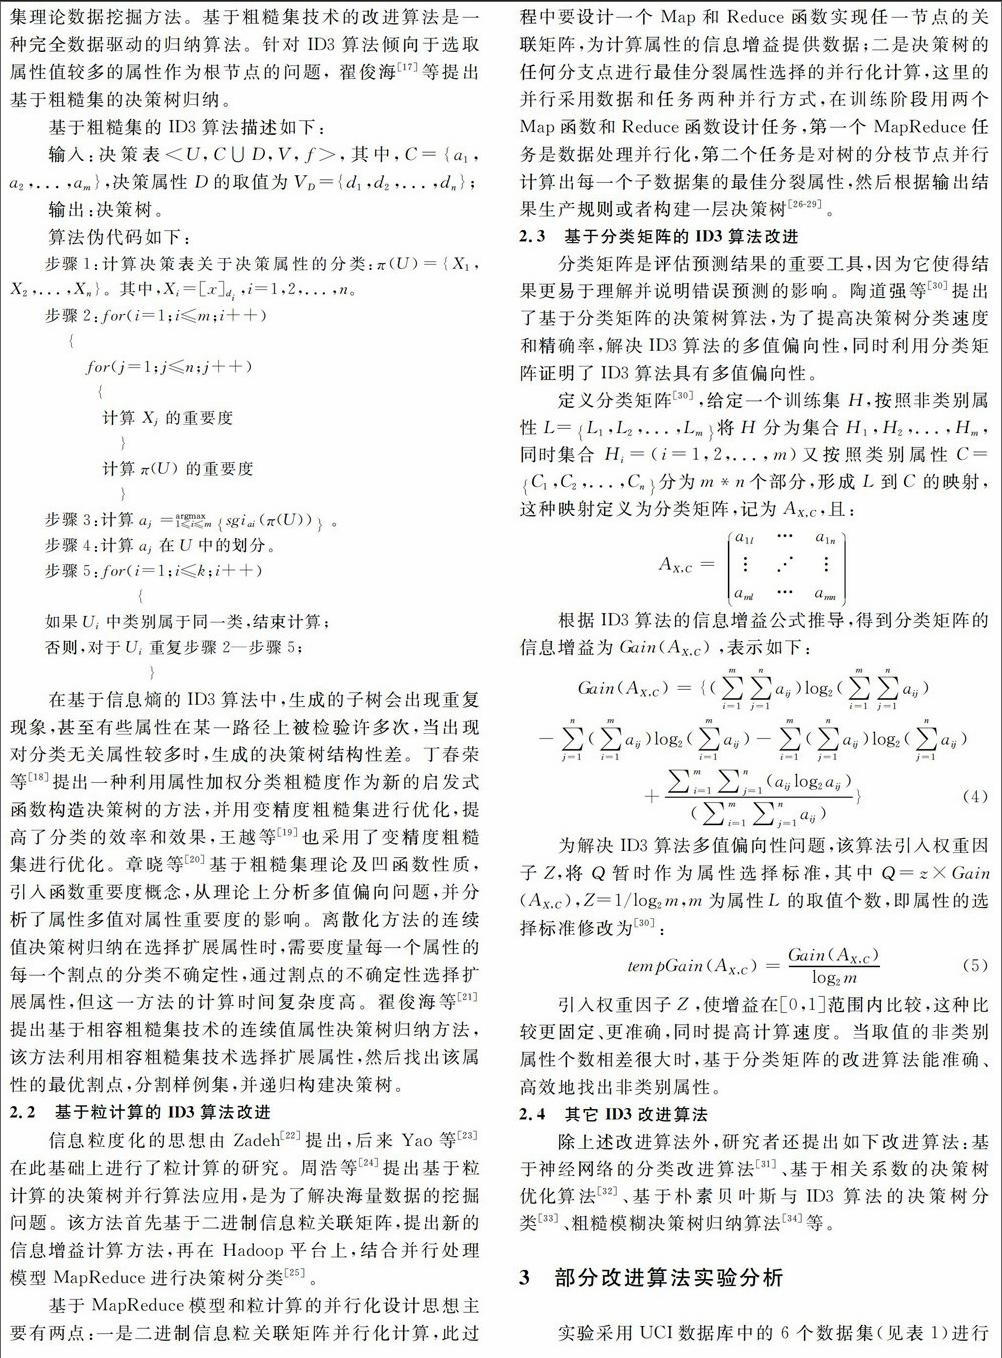 集理论数据挖掘方法。基于粗糙集技术的改进算法是一
种完全数据驱动的归纳算法。针对 ID3 算法倾向于选取
属性值较多的属性作为根节点的问题，翟俊海[17]等提出
基于粗糙集的决策树归纳。
基于粗糙集的 ID3 算法描述如下：
输入：决策表＜U,C∪D,V,f＞,其中,C={a1,
a2,...,am},决策属性 D 的取值为 VD={d1,d2,...,dn}；
输出：决策树。
算法伪代码如下：
步骤 1：计算决策表关于决策属性的分类：π(U)={X1,
X2,...,Xn}。其中,Xi=[x]di,i=1,2,...,n。
步骤 2：for(i=1;i≤m;i++)
{
for(j=1;j≤n;j++)
{
计算 Xj 的重要度
}
计算 π(U) 的重要度
}
步骤 3：计算 aj =argmax1≤i≤m{sgiai(π(U))}。
步骤 4：计算 aj 在 U 中的划分。
步骤 5：for(i=1;i≤k;i++)
{
如果 Ui 中类别属于同一类，结束计算；
否则，对于 Ui 重复步骤 2—步骤 5；
}
在基于信息熵的 ID3 算法中，生成的子树会出现重复
现象，甚至有些属性在某一路径上被检验许多次，当出现
对分类无关属性较多时，生成的决策树结构性差。丁春荣
等[18]提出一种利用属性加权分类粗糙度作为新的启发式
函数构造决策树的方法，并用变精度粗糙集进行优化，提
高了分类的效率和效果，王越等[19]也采用了变精度粗糙
集进行优化。章晓等[20]基于粗糙集理论及凹函数性质，
引入函数重要度概念，从理论上分析多值偏向问题，并分
析了属性多值对属性重要度的影响。离散化方法的连续
值决策树归纳在选择扩展属性时，需要度量每一个属性的
每一个割点的分类不确定性，通过割点的不确定性选择扩
展属性，但这一方法的计算时间复杂度高。翟俊海等[21]
提出基于相容粗糙集技术的连续值属性决策树归纳方法，
该方法利用相容粗糙集技术选择扩展属性，然后找出该属
性的最优割点，分割样例集，并递归构建决策树。
2.2 基于粒计算的 ID3 算法改进
信息粒度化的思想由 Zadeh[22]提出，后来 Yao 等[23]
在此基础上进行了粒计算的研究。周浩等[24]提出基于粒
计算的决策树并行算法应用，是为了解决海量数据的挖掘
问题。该方法首先基于二进制信息粒关联矩阵，提出新的
信息增益计算方法，再在 Hadoop 平台上，结合并行处理
模型 MapReduce 进行决策树分类[25]。
基于 MapReduce 模型和粒计算的并行化设计思想主
要有两点：一是二进制信息粒关联矩阵并行化计算，此过
程中要设计一个 Map 和 Reduce 函数实现任一节点的关
联矩阵，为计算属性的信息增益提供数据；二是决策树的
任何分支点进行最佳分裂属性选择的并行化计算，这里的
并行采用数据和任务两种并行方式，在训练阶段用两个
Map 函数和 Reduce 函数设计任务，第一个 MapReduce 任
务是数据处理并行化，第二个任务是对树的分枝节点并行
计算出每一个子数据集的最佳分裂属性，然后根据输出结
果生产规则或者构建一层决策树[26-29]。
2.3 基于分类矩阵的 ID3 算法改进
分类矩阵是评估预测结果的重要工具，因为它使得结
果更易于理解并说明错误预测的影响。陶道强等[30]提出
了基于分类矩阵的决策树算法，为了提高决策树分类速度
和精确率，解决 ID3 算法的多值偏向性，同时利用分类矩
阵证明了 ID3 算法具有多值偏向性。
定义分类矩阵[30]，给定一个训练集 H，按照非类别属
性 L={L1,L2,...,Lm}将 H 分为集合 H1,H2,...,Hm,
同时集合 Hi=(i=1,2,...,m)又按照类别属性 C=
{C1,C2,...,Cn}分为 m*n 个部分，形成 L 到 C 的映射，
这种映射定义为分类矩阵，记为 AX,C，且：
a1l ⋯ a1n
AX,C = ⋮ ⋰ ⋮
aml ⋯ amn
根据 ID3 算法的信息增益公式推导，得到分类矩阵的
信息增益为 Gain(AX,C)，表示如下：
Gain(AX,C) = {(∑i=1m ∑j=1n aij)log2(∑i=1m ∑j=1n aij)
− ∑j=1n(∑i=1m aij)log2(∑i=1m aij) − ∑i=1m(∑j=1n aij)log2(∑j=1n aij)
+ ∑i=1m ∑j=1n(aij log2 aij) / (∑i=1m ∑j=1n aij)} (4)
为解决 ID3 算法多值偏向性问题，该算法引入权重因
子 Z，将 Q 暂时作为属性选择标准，其中 Q=z×Gain
(AX,C),Z=1/log2m,m 为属性 L 的取值个数，即属性的选
择标准修改为[30]：
tempGain(AX,C) = Gain(AX,C) / log2m (5)
引入权重因子 Z，使增益在[0,1]范围内比较，这种比
较更固定、更准确，同时提高计算速度。当取值的非类别
属性个数相差很大时，基于分类矩阵的改进算法能准确、
高效地找出非类别属性。
2.4 其它 ID3 改进算法
除上述改进算法外，研究者还提出如下改进算法：基
于神经网络的分类改进算法[31]、基于相关系数的决策树
优化算法[32]、基于朴素贝叶斯与 ID3 算法的决策树分
类[33]、粗糙模糊决策树归纳算法[34]等。
3 部分改进算法实验分析
实验采用 UCI 数据库中的 6 个数据集（见表 1）进行